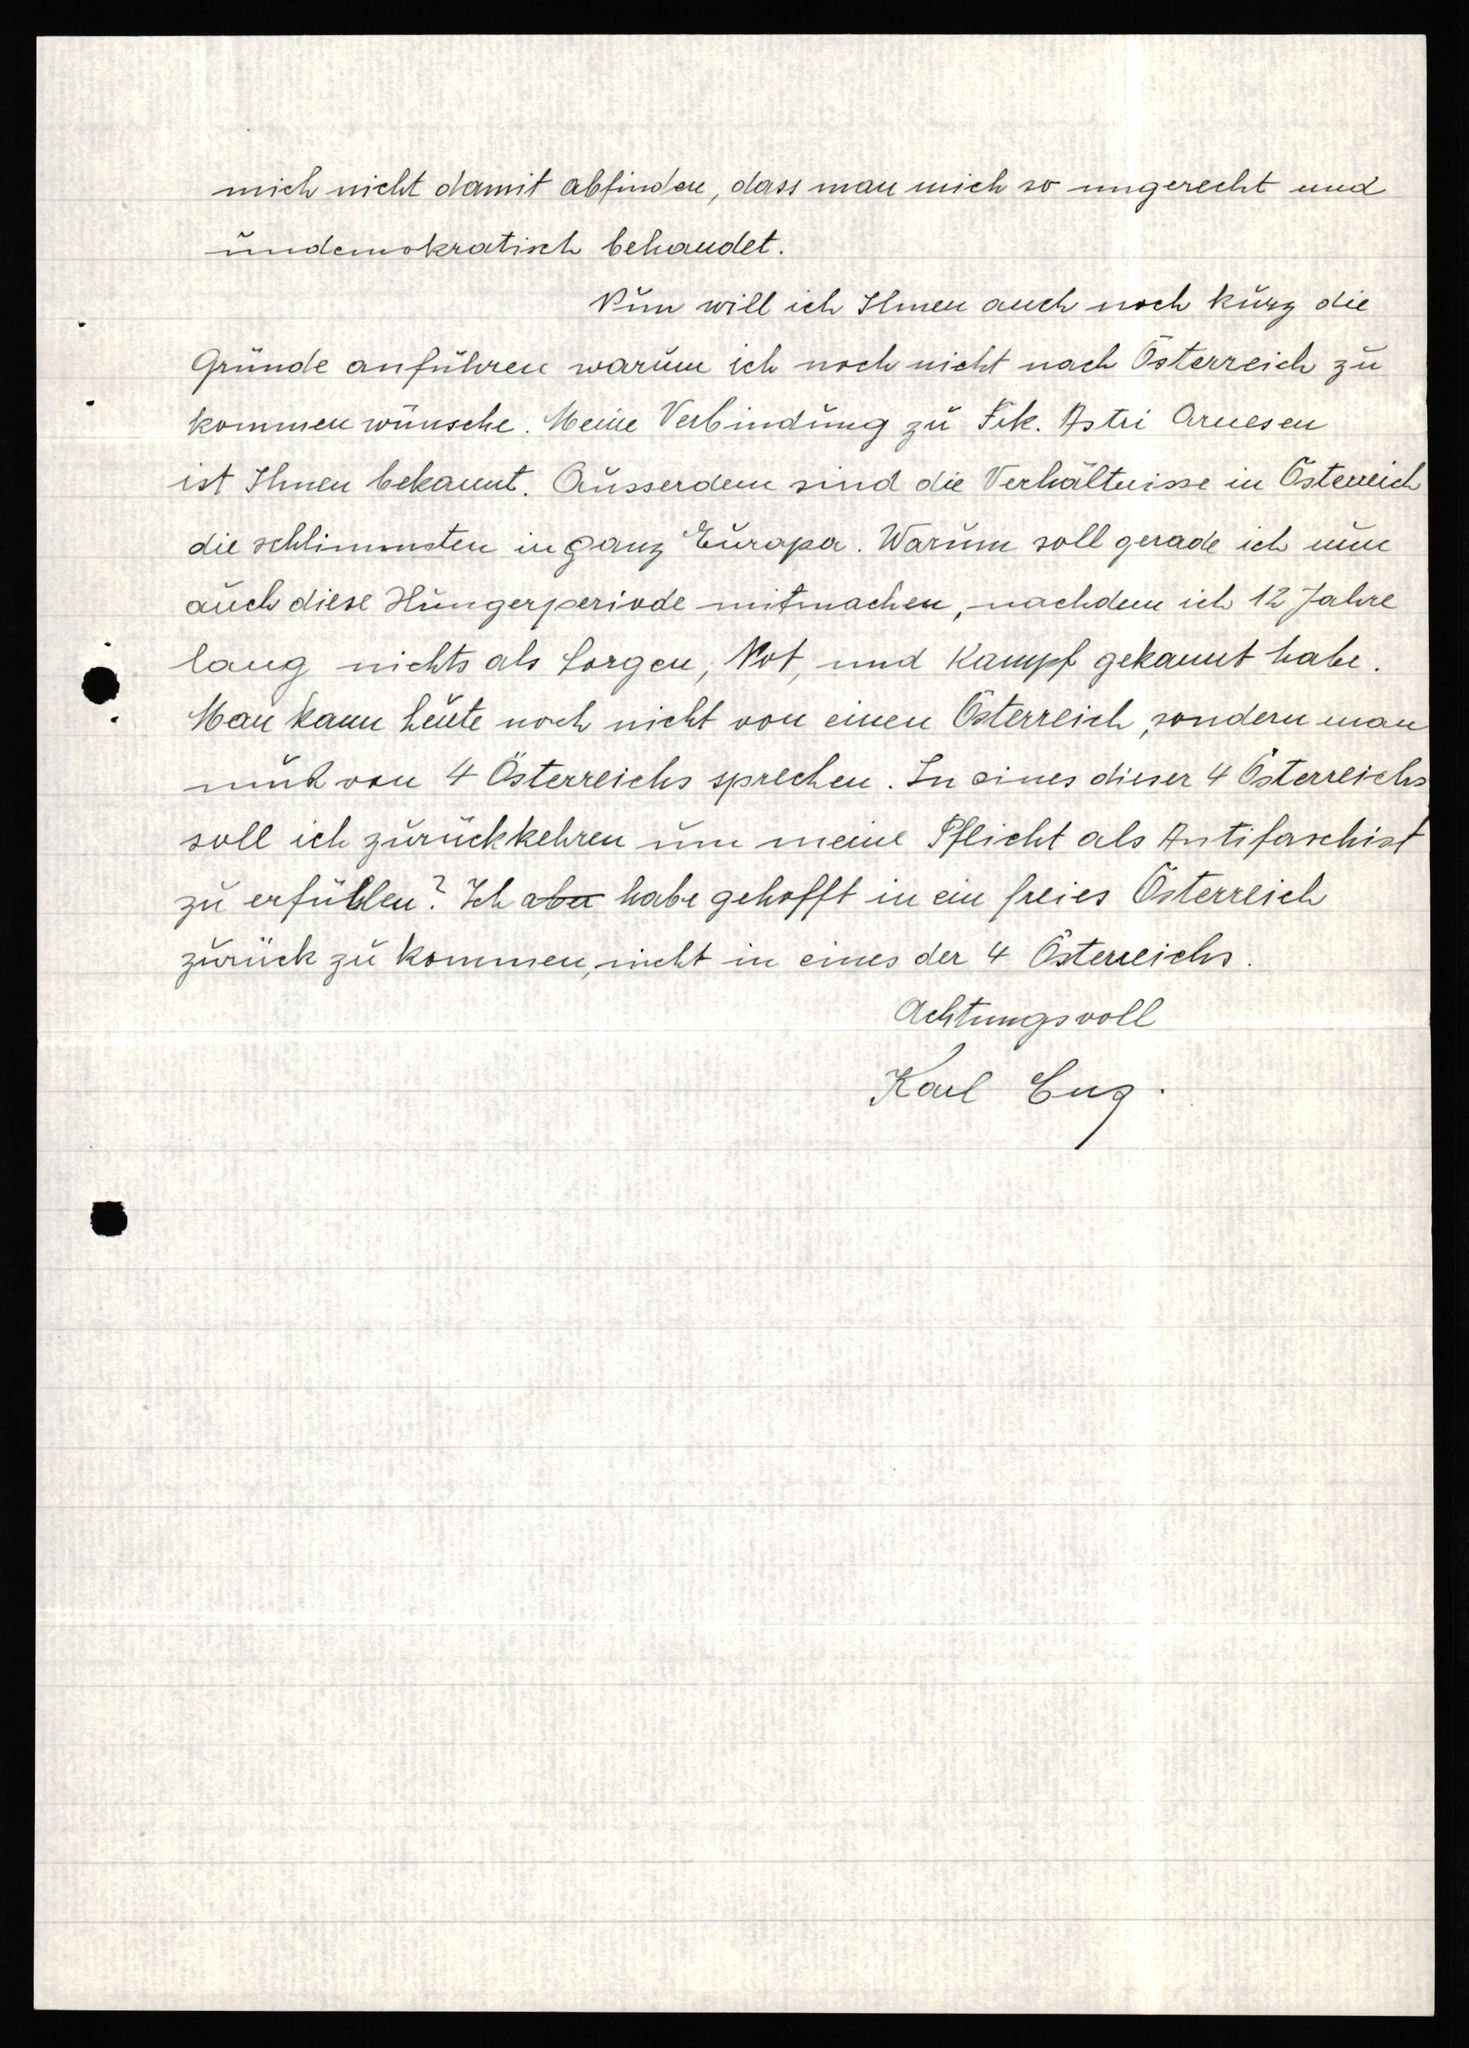 mich nicht damit abfinden, dass man mich so ungerecht und
undemokratisch behandet.
Nun will ich Ihnen auch noch kurz die
Gründe anführen warum ich noch nicht nach Österreich zu
kommen wünsche. Meine Verbindung zu Frk. Astri Arnesen
ist Ihnen bekannt. Ausserdem sind die Verhältnisse in Österreich
die schlimmsten in ganz Europa. Warum soll gerade ich nun
auch diese Hungerperiode mitmachen, nachdem ich 12 Jahre
lang nichts als Sorgen, Not, und Kampf gekannt habe.
Man kann heute noch nicht von einen Österreich, sondern man
muß von 4 Österreichs sprechen. In eines dieser 4 Österreichs
soll ich zurückkehren um meine Pflicht als Antifaschist
zu erfühlen? Ich aber habe gehofft in ein freies Österreich
zurück zu kommen, nicht in eines der 4 Österreichs.
Achtungsvoll
Karl